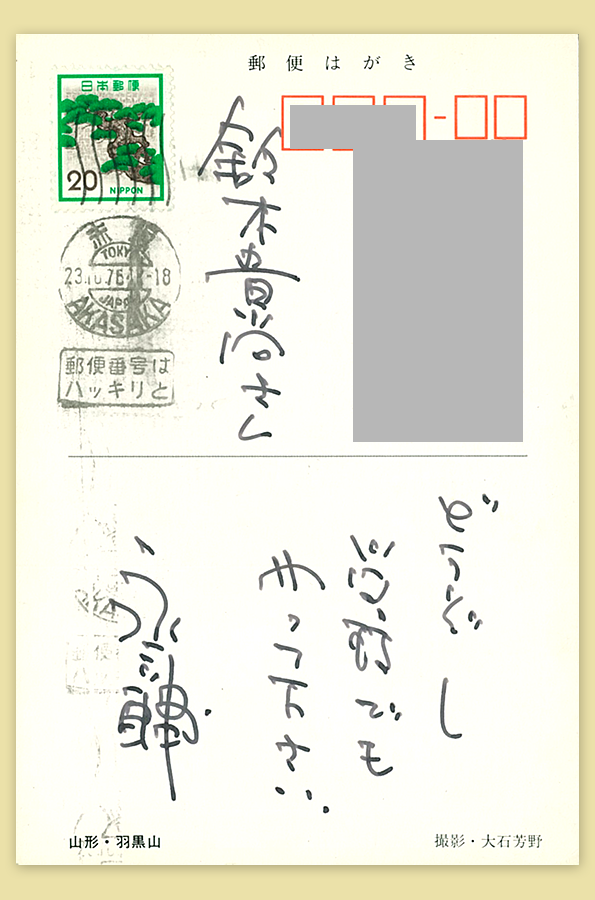 郵便はがき
日本郵便
20
NIPPON
TOKYO
JAPAN
AKASAKA
郵便番号は
ハッキリと
鈴木貴尚さん
どうぞ
でも
やって下さい
六輔
山形・羽黒山
撮影・大石芳野